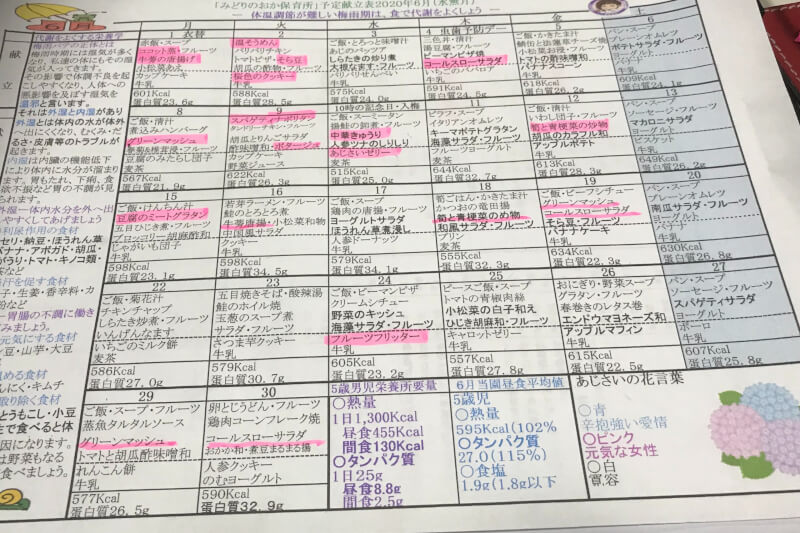 「みどりのおか保育所」予定献立表2020年6月(水無月)
― 体温調節が難しい梅雨期は、食で代謝をよくしょう ―
6月
月
火
木
金
土
献
立
代謝をよくする栄養学
梅雨バテの正体とは
梅雨時期には湿気が多く
なり、私達の体にもその湿
気が入ってきます。
その影響で体調不良を起
こしやすくなり、人体への
悪影響を及ぼす湿気を
湿邪と言います。
それは外湿と内湿があり
外湿とは体内の水が体外
へ出にくくなり、むくみ・だ
るさ・皮膚等のトラブルが
起きます。
内湿は内臓の機能低下
により体内に水分が溜まり
ます。胃もたれ、下痢、食
欲不振など胃の不調が見
られます。
1
衣替
赤飯・スープ
ココット蒸・フルーツ
牛蒡の唐揚げ
小松菜あえ
カップケーキ
牛乳
601Kcal
蛋白質23.6g
2
温そうめん
パリパリチキン
トマトピザ・そら豆
胡瓜の酢物・フルーツ
桜色のクッキー
牛乳
588Kcal
蛋白質28.5g
3
ご飯・とろっと味噌汁
あじシソフライ
しらたきの炒り煮
大根なます・フルーツ
パリパリせんべい
牛乳
575Kcal
蛋白質24.0g
4 虫歯予防デー
三色丼・清汁
湯豆腐・フルーツ
ピーマンピザ揚
コールスローサラダ
いちごのババロア
牛乳
591Kcal
蛋白質24.5g
5
ご飯・かきたま汁
トマトの酢味噌和
バナナスコーン
牛乳
618Kcal
蛋白質26.2g
6
パン・スープ
プレーンオムレツ
ポテトサラダ・フルーツ
ヨーグルト
バナナ
牛乳
8
ご飯・清汁
煮込みハンバーグ
グリーンマッシュ
豆腐のみたらし団子
麦茶
567Kcal
蛋白質21.9g
9
スパゲティナポリタン
タンドリーチキン・フルーツ
胡瓜とりんごサラダ
酢味噌和・ポタージュ
カップケーキ
野菜ジュース
622Kcal
蛋白質26.3g
10 時の記念日・入梅
ご飯・スータン
揚鮭の卸煮・フルーツ
中華きゅうり
人参ツナのしりしり
あじさいゼリー
麦茶
515Kcal
蛋白質25.0g
11
ピラフ・スープ
イタリアンオムレツ
キーマポテトグラタン
海藻サラダ・フルーツ
麦茶
644Kcal
蛋白質32.7g
12
ご飯・清汁
いわし団子・フルーツ
筍と青梗菜の炒物
胡瓜のカラフル和
アップルポテト
牛乳
613Kcal
蛋白質20.9g
13
パン・スープ
ソーセージ・フルーツ
マカロニサラダ
ヨーグルト
ビスケット
牛乳
649Kcal
蛋白質26.2g
15
ご飯・けんちん汁
豆腐のミートグラタン
五目ひじき煮・フルーツ
ブロッコリー胡麻酢和
じゃがいも団子
牛乳
598Kcal
蛋白質23.1g
16
若芽ラーメン・フルーツ
鮭のとろとろ煮
牛蒡唐揚・小松菜和物
中国風サラダ
クッキー
牛乳
598Kcal
蛋白質34.5g
17
ご飯・スープ
鶏肉の唐揚・フルーツ
ヨーグルトサラダ
ほうれん草煮浸し
人参ドーナッツ
牛乳
579Kcal
蛋白質34.1g
18
筍ごはん・かきたま汁
かつおの竜田揚
筍と青梗菜のめ物
和風サラダ・フルーツ
プリン
麦茶
656Kcal
蛋白質28.3g
19
ご飯・ビーフシチュー
グリーンマッシュ
コールスローサラダ
そら豆・フルーツ
バナナケーキ
牛乳
634Kcal
蛋白質22.3g
20
パン・スープ
プレーンオムレツ
南瓜サラダ・フルーツ
ヨーグルト
牛乳
630Kcal
蛋白質26.8g
22
ご飯・菊花汁
チキンチャップ
しらたき炒煮・フルーツ
いんげんなます
いちごのミルク餅
麦茶
586Kcal
蛋白質27.0g
23
五目焼きそば・酸辣湯
鮭のホイル焼
玉葱のスープ煮
サラダ・フルーツ
さつま芋クッキー
牛乳
579Kcal
蛋白質30.7g
24
ご飯・ビーマンピザ
クリームシチュー
野菜のキッシュ
海藻サラダ・フルーツ
フルーツフリッター
牛乳
605Kcal
蛋白質23.2g
25
ピースご飯・スープ
トマトの青椒肉絲
小松菜の白子和え
ひじき胡麻和・フルーツ
キャロットゼリー
牛乳
557Kcal
蛋白質27.8g
26
おにぎり・野菜スープ
グラタン・フルーツ
春巻きのレタス巻
エンドウマヨネーズ和
アップルマフィン
牛乳
615Kcal
蛋白質22.5g
27
パン・スープ
ソーセージ・フルーツ
スパゲティサラダ
ヨーグルト
ボーロ
牛乳
607Kcal
蛋白質25.8g
29
ご飯・スープ・フルーツ
蒸魚タルタルソース
グリーンマッシュ
トマトと胡瓜酢味噌和
れんこん餅
牛乳
577Kcal
蛋白質26.5g
30
卵とじうどん・フルーツ
鶏肉コーンフレーク焼
コールスローサラダ
おかか和・煮豆まるまる揚
人参クッキー
のむヨーグルト
590Kcal
蛋白質32.9g
5歳男児栄養所要量
○熱量
1日1,300Kcal
昼食455Kcal
間食130Kcal
○タンパク質
1日25g
昼食8.8g
間食2.5g
6月当園昼食平均値
5歳児
○熱量
595Kcal(102%
○タンパク質
27.0(115%)
○食塩
1.9g(1.8g以下
あじさいの花言葉
○青
辛抱強い愛情
○ピンク
元気な女性
○白
寛容